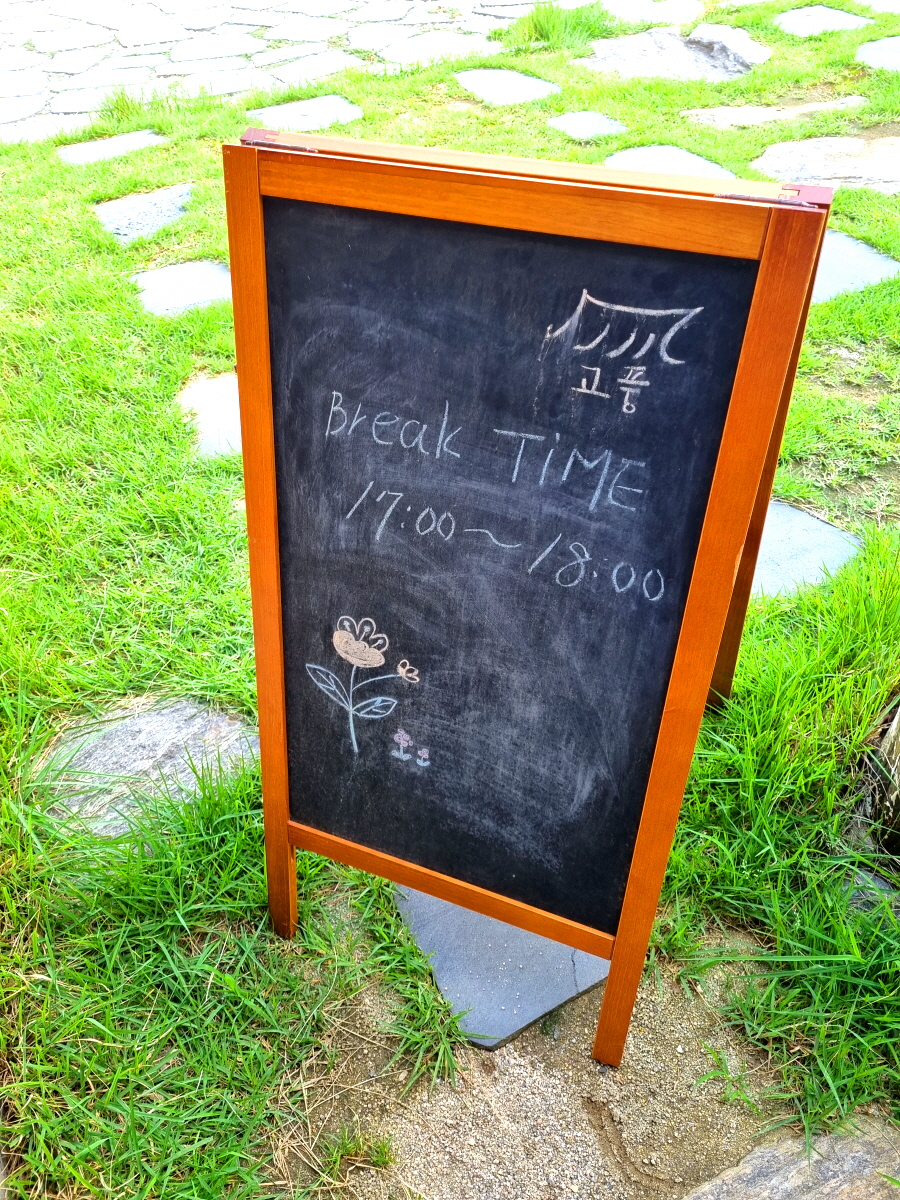 고풍
Break TiME
17:00~18:00